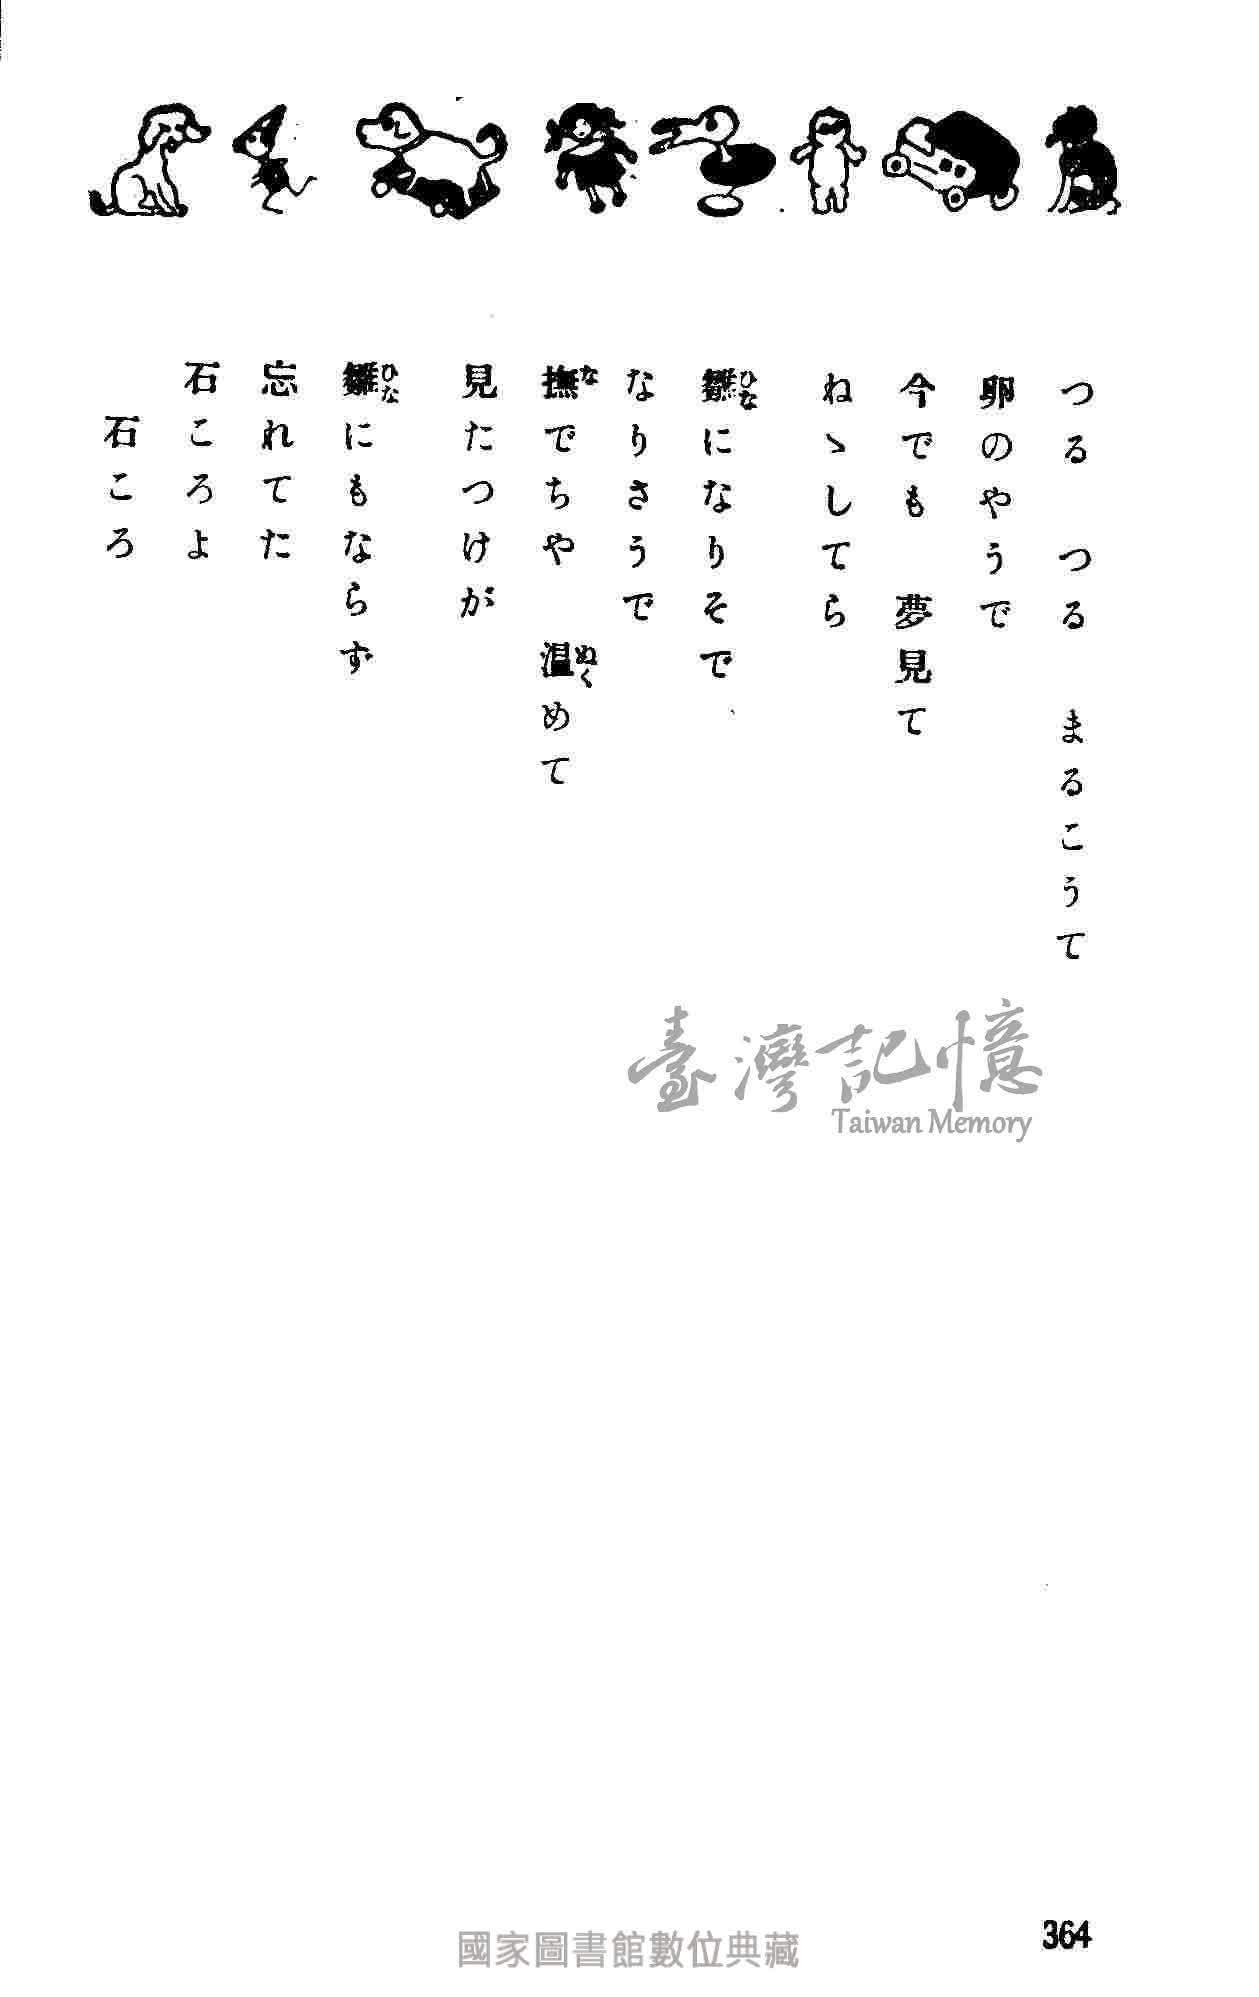 つる　つる　まるこうて
卵のやうで
今でも　夢見て
ねゝしてら
雛になりそで
ひな
なりさうで
撫でちや　温めて
な
ぬく
見たつけが
雛にもならず
ひな
忘れてた
石ころよ
石ころ
臺灣記憶
Taiwan Memory
國家圖書館數位典藏
364